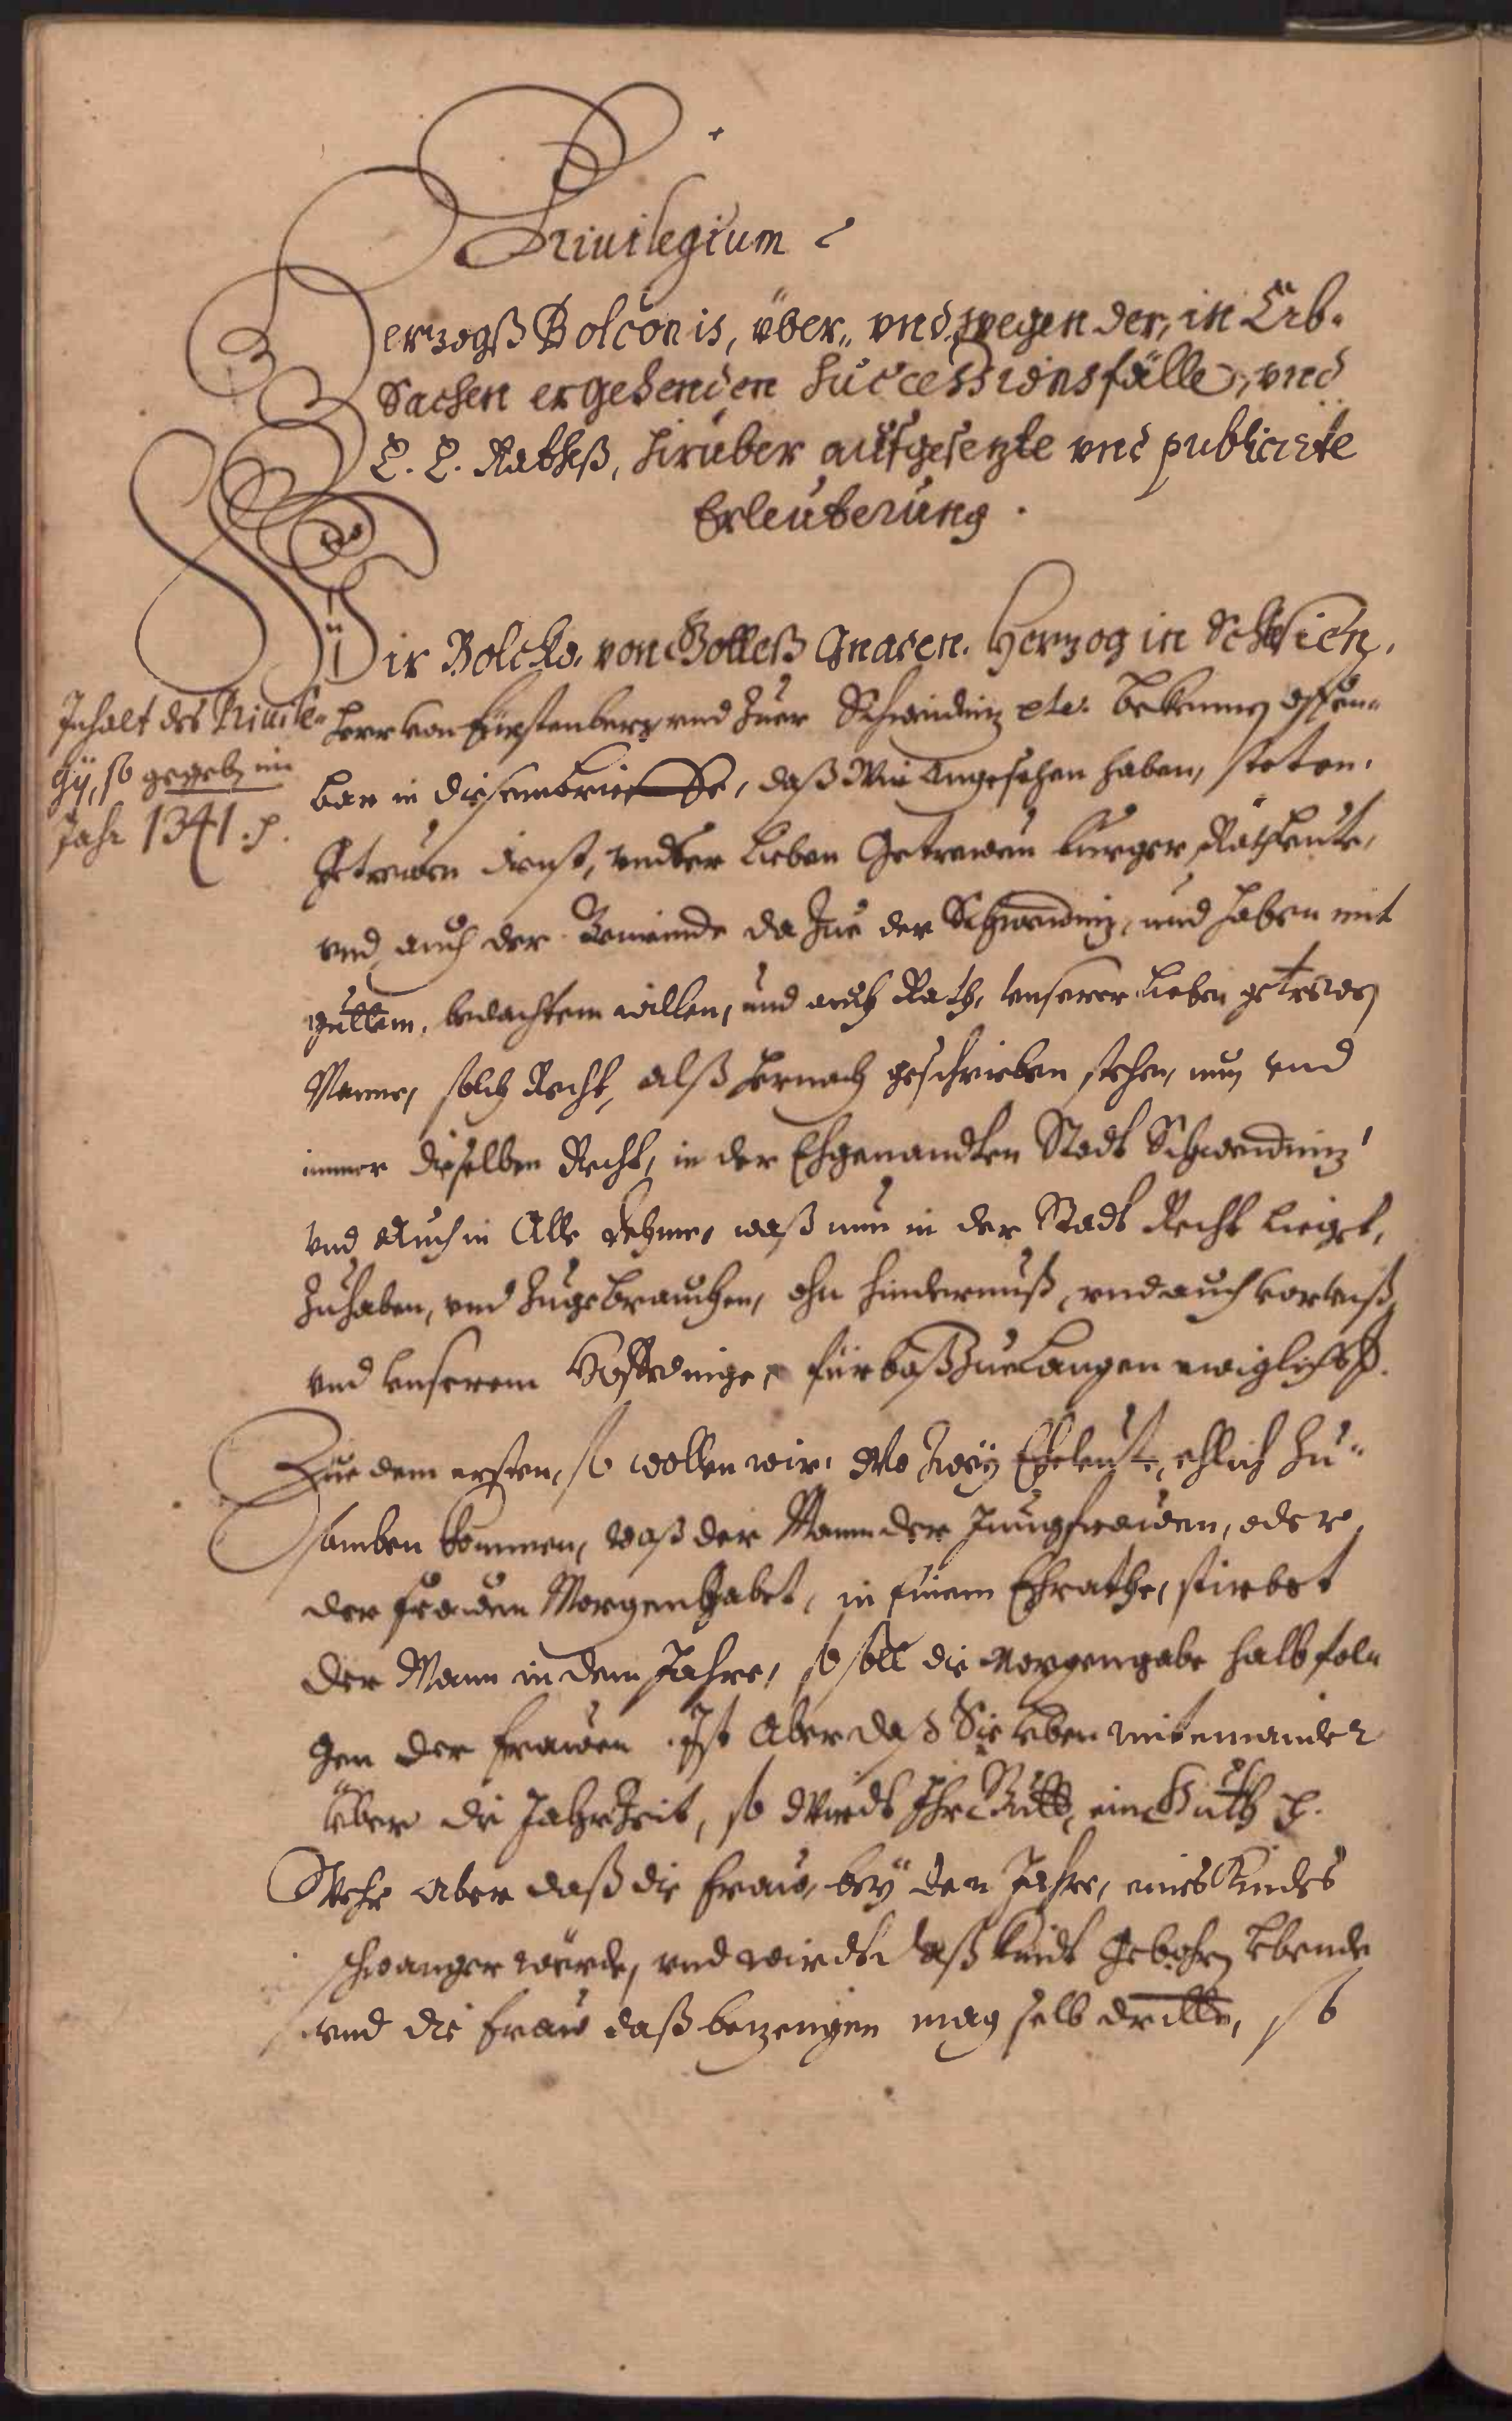 Privilegium
Herzogß Bolconis, über„ vnd wegen der, in Erb„
Sachen ergehenden Successionsfälle, vnd
E. E. Rathß, hirüber aufgesezte vnd publicirte
Erleuterung.
Wir Bolcko. von Gotteß Gnaden. Herzog in Schlesien,
Inhalt des Privile„
gÿ, so gegeb. im
Jahr 1341. p.
Herr von Fürstenberg vnd Zuer Schweidniz etc. bekennen offen„
bar in diesem brieffe, daß Wir Angesehen haben, steten,
Getreuen dienst, vnser Lieben Getrewen burger, Rathleute,
vnd auch der Gemeinde da Zue der Schweidniz, und haben mit
guttem, bedachtem willen, und auch Rath, vnserer Lieben getrewen
Manne, solch Recht, alß hernach geschrieben stehen, nun vnd
immer dieselben Recht, in der Ehgenandten Stadt Schweidniz
vnd Auch in Alle waß nun in der Stadt Recht Lieget,
Zuhaben, vnd Zugebrauchen, ohn hindernuß, vnd auch
vnd vnserem fürbaß Zue Langen ewiglich p.
Zue dem ersten, so wollen wir, Wo Zwey Eheleute, ehlich Zu„
samben kommen, waß der Mann der Jungfrawen, oder
der frawen Morgenhabet, in seinem Ehrathe, stirbet
der Mann in dem Jahre, so soll die Morgengabe halb fol„
gen der frawen. Ist Aber daß Sie Leben miteinander
über die JahrZeit, so wirdt Ihr Gutt, ein Gutt p.
Wehr Aber daß die fraw, beÿ dem Jahre, eines Kindes
schwanger würde, vnd wirdt daß kindt Gebohren Lebende
vnd die fraw daß bezeugen mag selb dritte, so